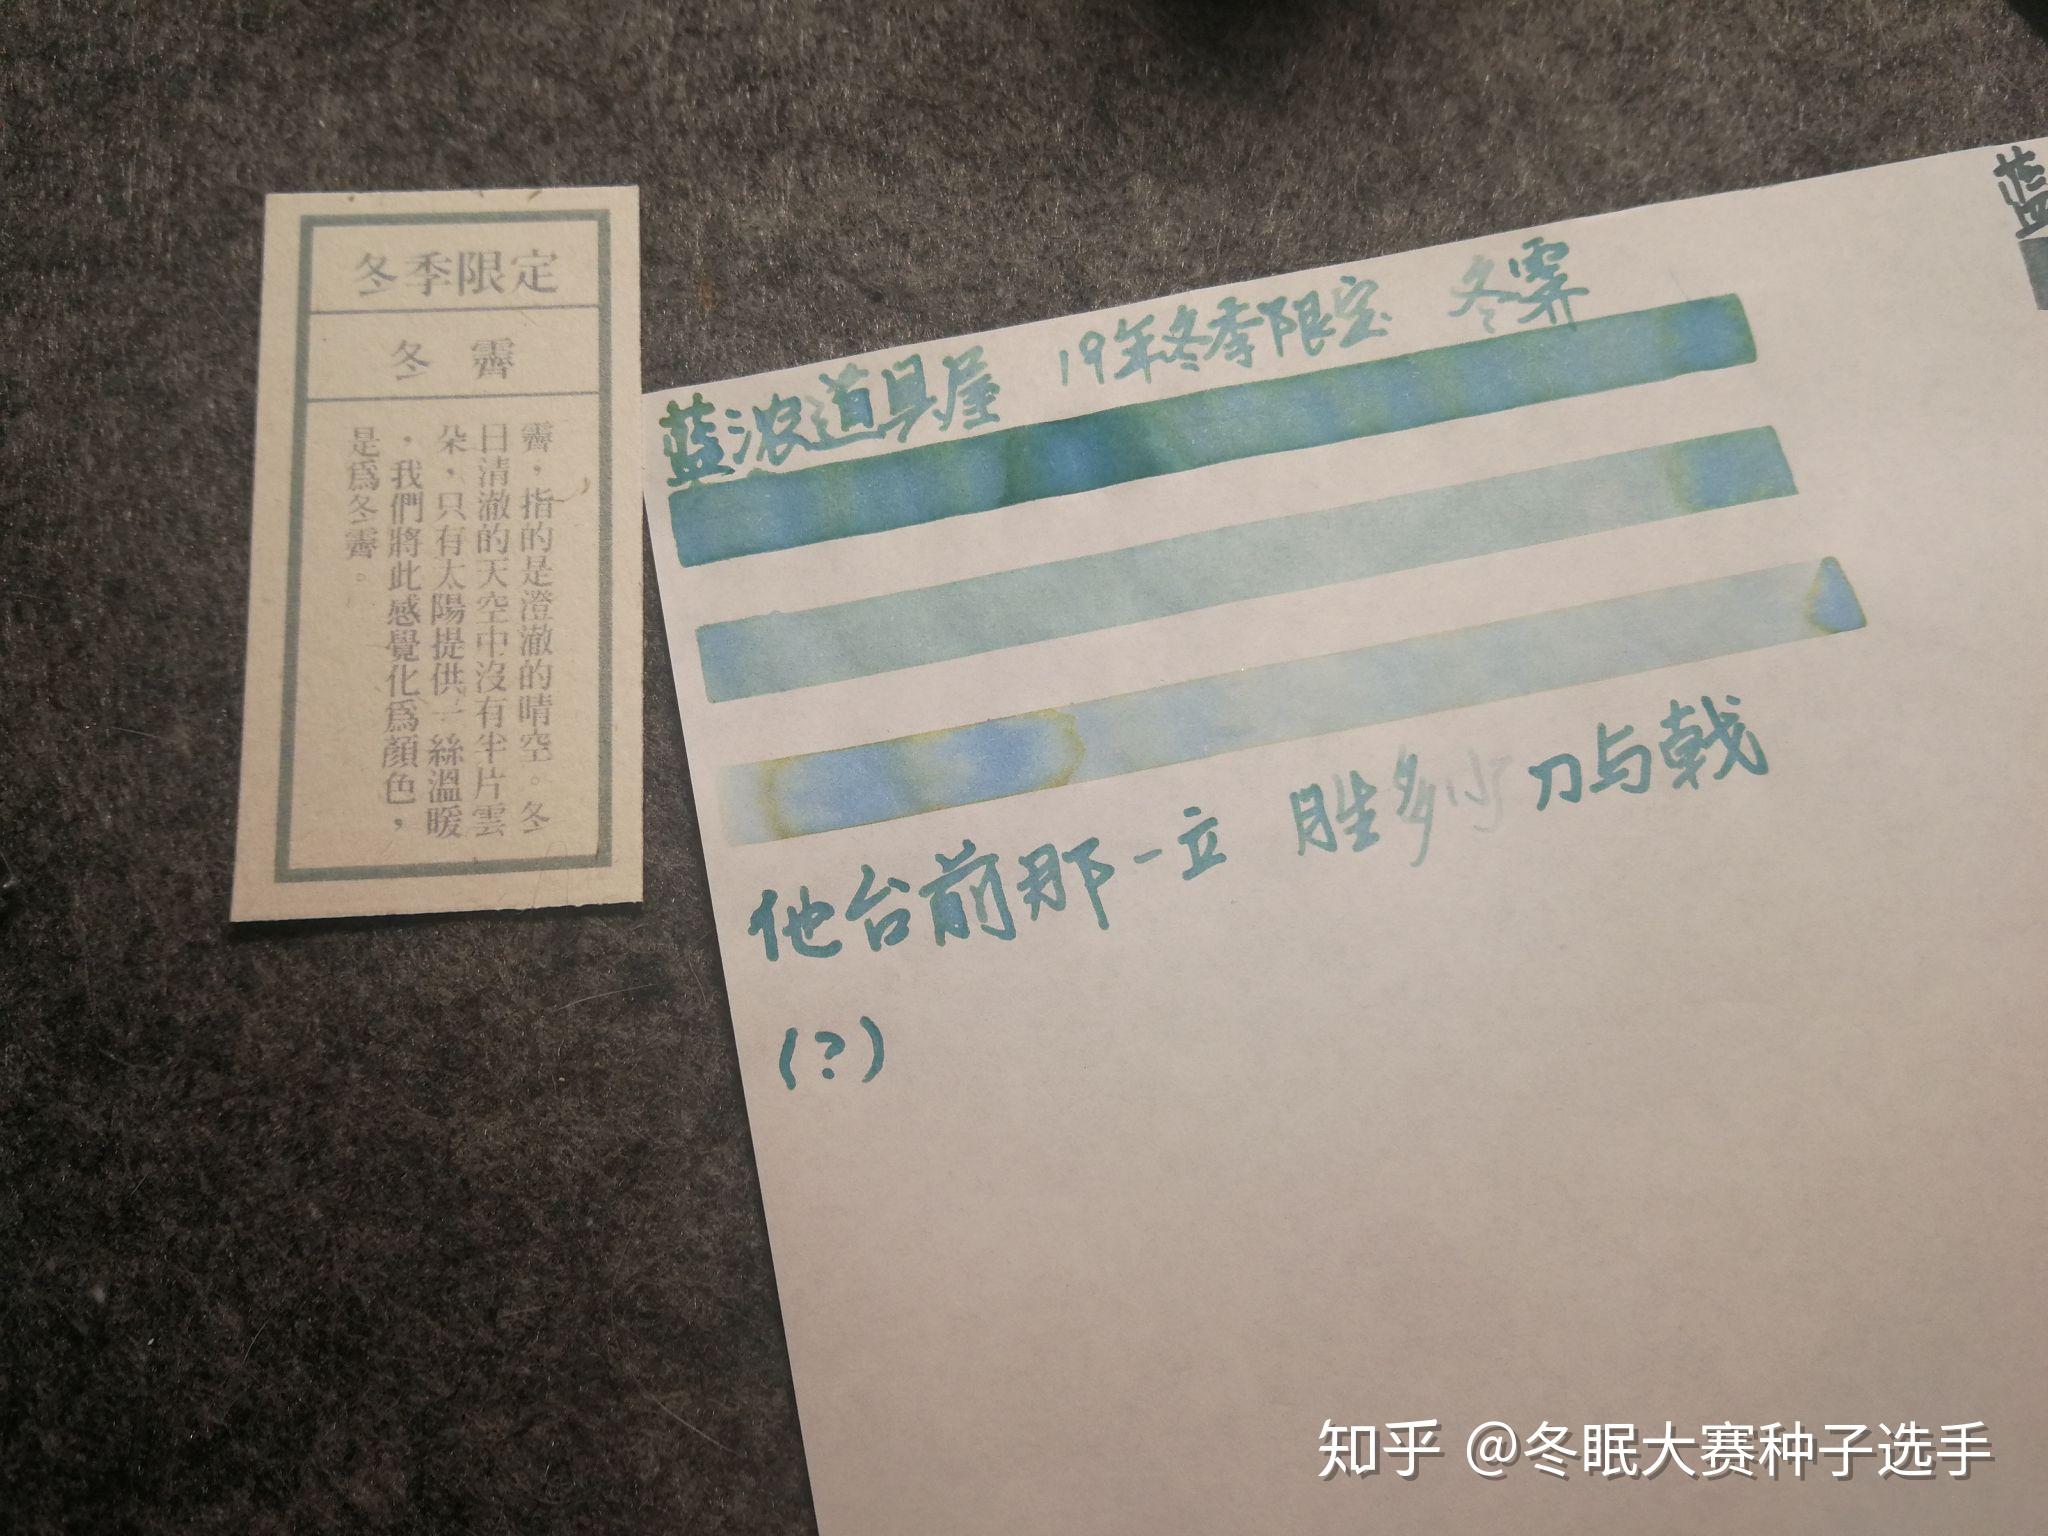 冬季限定
冬 霽
霽，指的是澄澈的晴空。冬
日清澈的天空中沒有半片雲
朵，只有太陽提供一絲溫暖
，我們將此感覺化爲顏色，
是爲冬霽。
蓝浓道具屋 19年冬季限定 冬霁
他台前那一立 胜多少刀与戟
(?)
蓝
知乎 @冬眠大赛种子选手